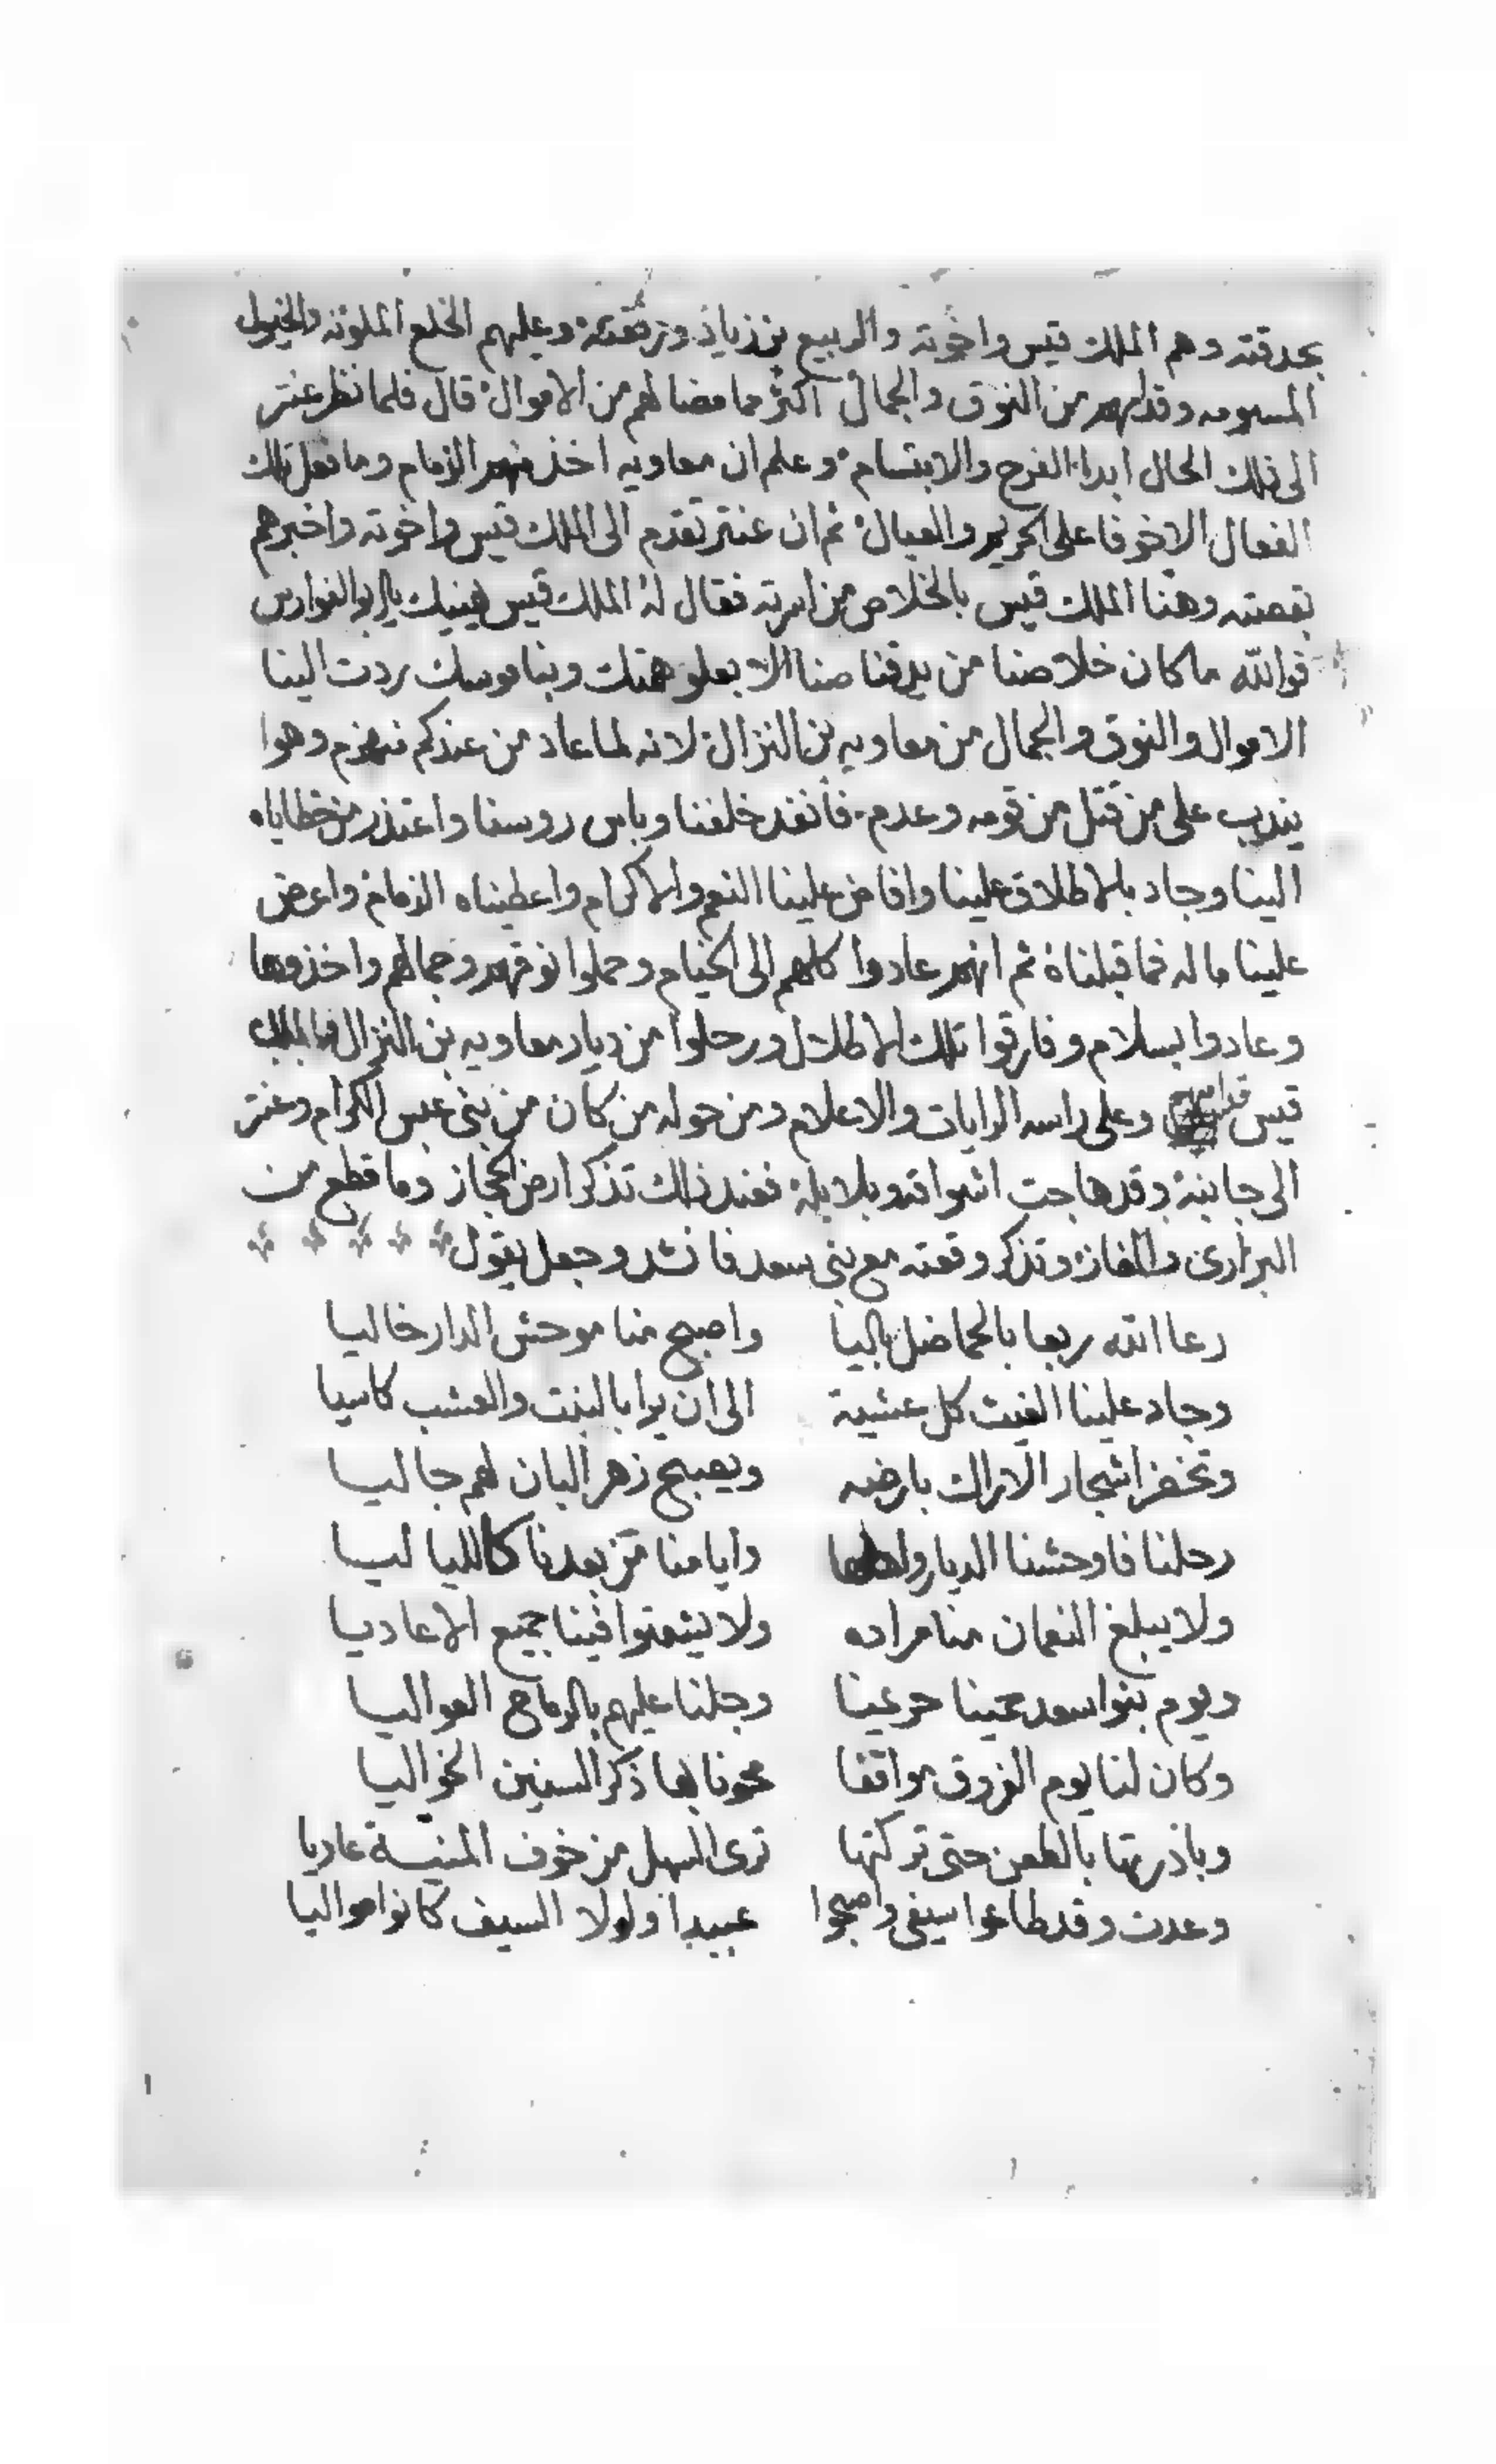 بحدقته وهم الملك قيس واخوته والربيع بن زياد ورفقته وعليهم الخلع الملونه والخيول
المسومه وقدامهم من النوق والجمال اكثر مما مضا لهم من الاموال قال فلما نظر عنتر
الى ذلك الحال ابدا الفرح والابتسام وعلم ان معاويه اخذ منهم الزمام وما فعل تلك
الفعال الا خوفا على الحريم والعيال ثم ان عنتر تقدم الى الملك قيس واخوته واخبرهم
بقصته وهنا الملك قيس بالخلاص من اسرته فقال له الملك قيس هينيك يا ابو الفوارس
فوالله ما كان خلاصنا من يد قناصنا الا بعلو همتك وبناموسك ردت الينا
الاموال والنوق والجمال من معاويه بن النزال لانه لما عاد من عندكم منهزم وهوا
يندب على من قتل من قومه وعدم فانفد خلفنا وباس روسنا واعتذر من خطاياه
الينا وجاد بالاطلاق علينا وافاض علينا النعم والاكرام واعطيناه الذمام واعرض
علينا ماله فما قبلناه ثم انهم عادوا كلهم الى الخيام وحملوا نوقهم وجمالهم واخذوها
وعادوا بسلام وفارقوا تلك الاطلال ورحلوا من ديار معاويه بن النزال والملك
قيس وعلى راسه الرايات والاعلام ومن حوله من كان من بنى عبس الكرام وعنتر
الى جانبه وقد هاجت اشواقه وبلابله فعند ذلك تذكر ارض الحجاز وما قطع من
البرارى والمفازه وتذكر وقعته مع بنى سعد فانشد وجعل يقول
رعا الله ربعا بالحما ضل باليا واصبح منا موحش الدار خاليا
وجاد علينا الغيت كل عشية الى ان يرا بالنبت والعشب كاسيا
وتخضر اشجار الاراك بارضه ويصبح زهر البان لهم جاليا
رحلنا فاوحشنا الديار واهلها وايامنا من بعدنا كالليا ليا
ولا يبلغ النعمان منا مراده ولا يشمتوا فينا جميع الاعاديا
ويوم بنوا سعد حمينا حريمنا وجلنا عليهم بالرماح العواليا
وكان لنا يوم الفروق مواقفا محونا بها ذكر السنين الخواليا
وبادرتها بالطعن حتى تركتها ترى السهل من خوف المنية عاديا
وعدت وقد طاعوا سيفى واصبحوا عبيدا ولولا السيف كانوا مواليا